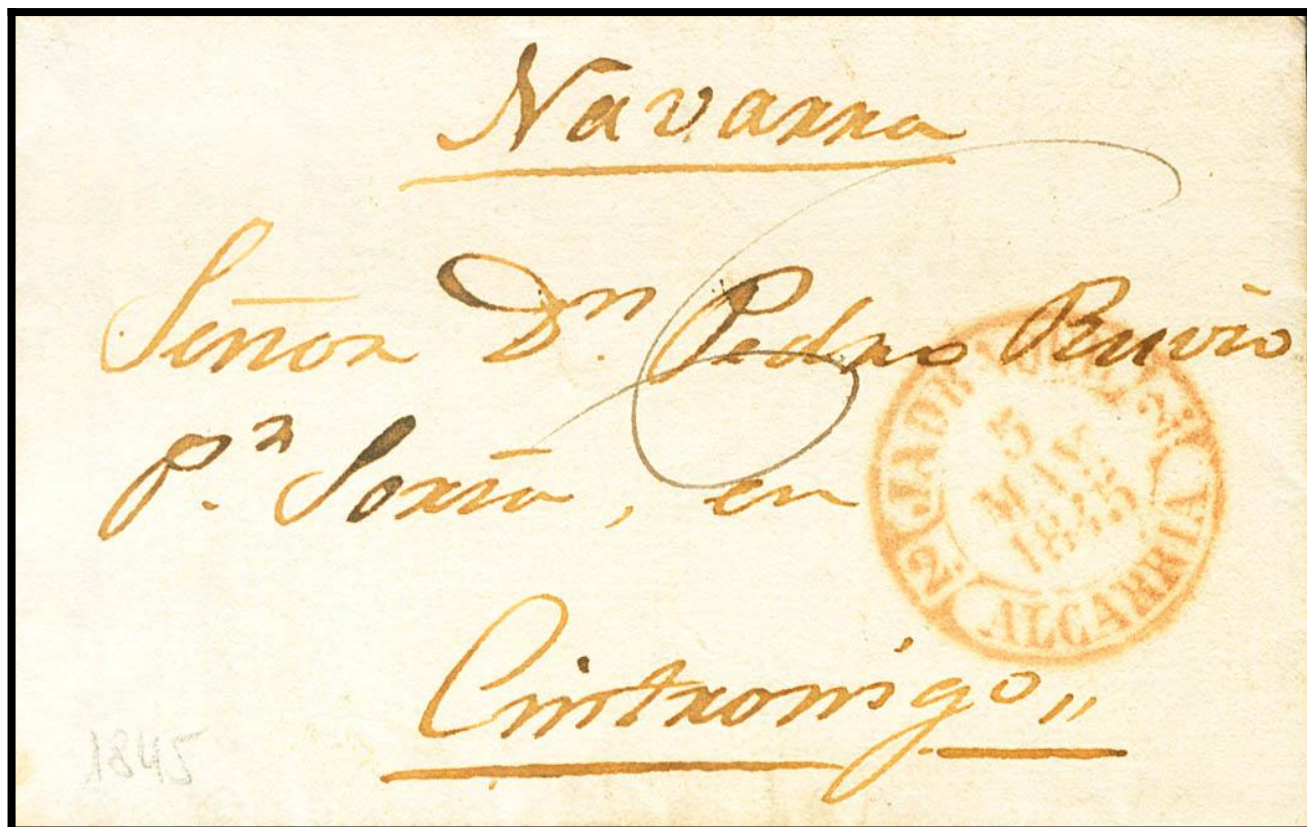 Navarra
Señor Dⁿ. Pedro Ruvio
P.ʳ Soria, en
Cintronigº,,
5
MAY
1845
2
ALCARRIA
2
1845